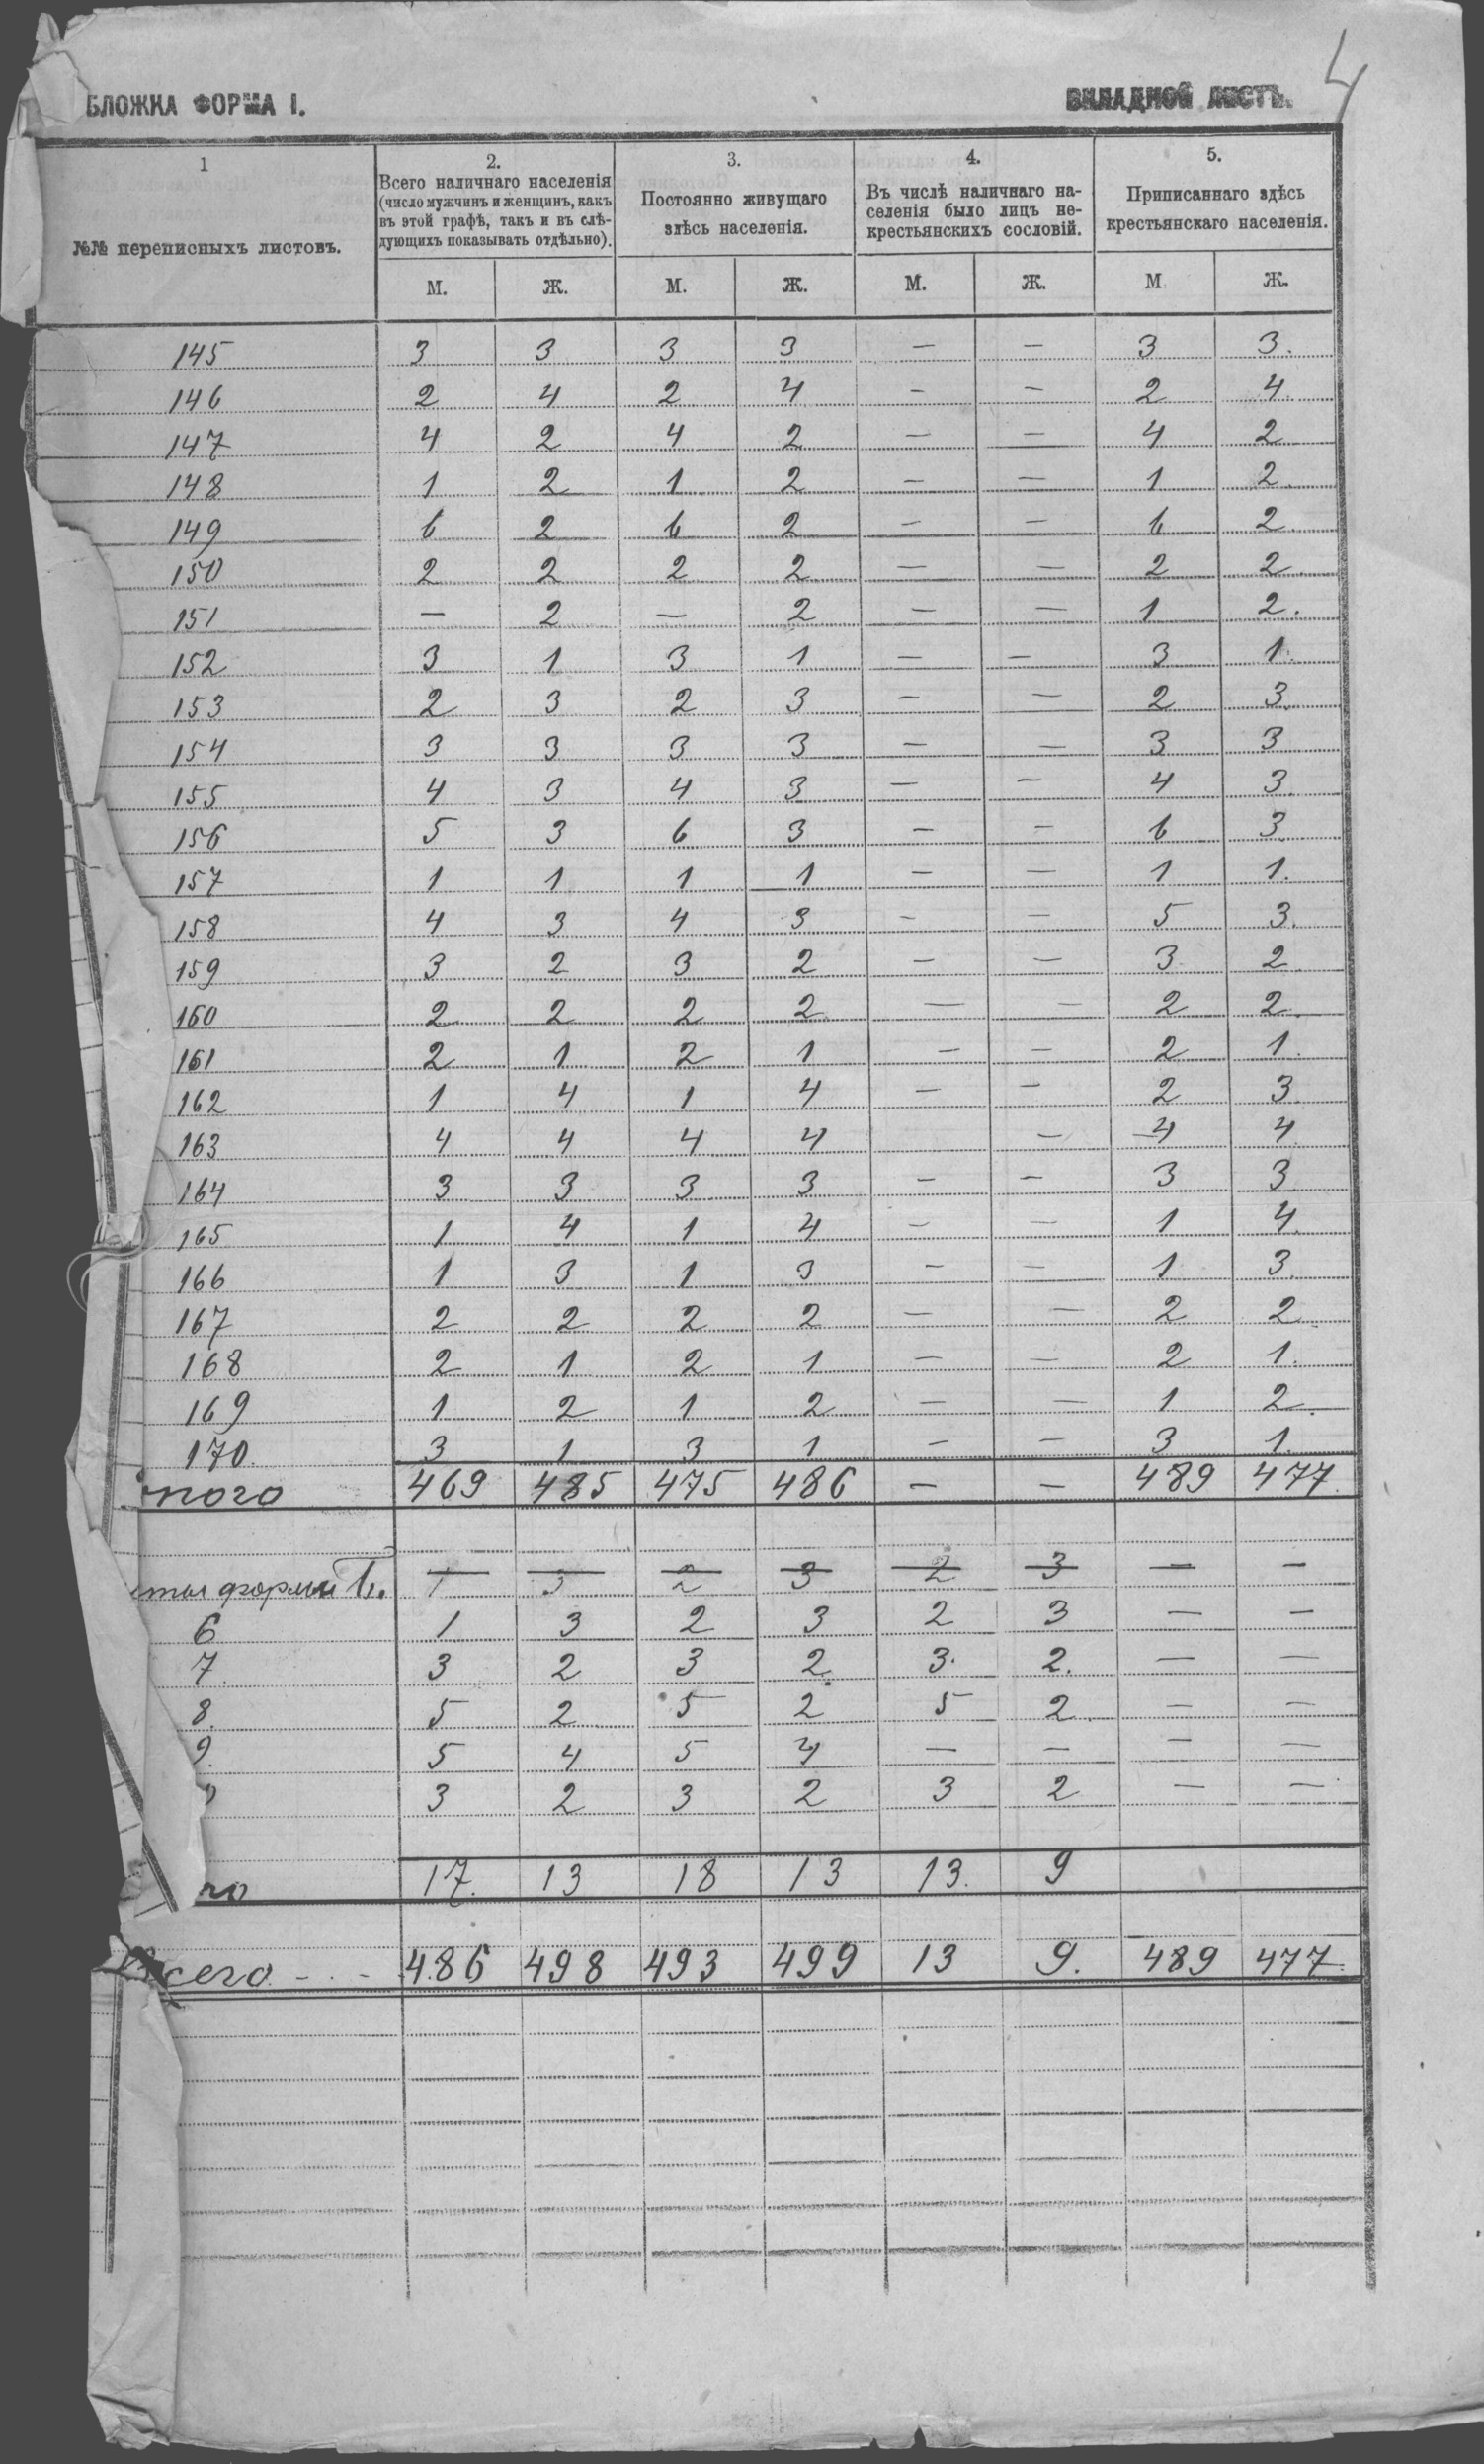 БЛОЖКА ФОРМА I. ВКЛАДНОЙ ЛИСТЪ. 4
1 2. 3. 4. 5.
№№ переписныхъ листовъ.
Всего наличнаго населенія
(число мужчинъ и женщинъ, какъ
въ этой графѣ, такъ и въ слѣ-
дующихъ показывать отдѣльно).
Постоянно живущаго
здѣсь населенія.
Въ числѣ наличнаго на-
селенія было лицъ не-
крестьянскихъ сословій.
Приписаннаго здѣсь
крестьянскаго населенія.
М. Ж. М. Ж. М. Ж. М Ж.
145 3 3 3 3 — — 3 3.
146 2 4 2 4 — — 2 4.
147 4 2 4 2 — — 4 2
148 1 2 1 2 — — 1 2.
149 6 2 6 2 — — 6 2
150 2 2 2 2 — — 2 2.
151 — 2 — 2 — — 1 2.
152 3 1 3 1 — — 3 1.
153 2 3 2 3 — — 2 3.
154 3 3 3 3 — — 3 3
155 4 3 4 3 — — 4 3.
156 5 3 6 3 — — 6 3.
157 1 1 1 1 — — 1 1.
158 4 3 4 3 — — 5 3.
159 3 2 3 2 — — 3 2
160 2 2 2 2 — — 2 2.
161 2 1 2 1 — — 2 1.
162 1 4 1 4 — — 2 3.
163 4 4 4 4 — — 4 4
164 3 3 3 3 — — 3 3
165 1 4 1 4 — — 1 4.
166 1 3 1 3 — — 1 3.
167 2 2 2 2 — — 2 2.
168 2 1 2 1 — — 2 1.
169 1 2 1 2 — — 1 2.
170. 3 1 3 1 — — 3 1.
того 469 485 475 486 — — 489 477.
формы Б. 1 3 2 3 2 3 — —
6 1 3 2 3 2 3 — —
7. 3 2 3 2. 3. 2. — —
8. 5 2 5 2 5 2. — —
9. 5 4 5 4 — — — —
3 2 3 2 3 2 — —
го 17. 13 18 13 13. 9
Всего - . - 486 498 493 499 13 9. 489 477.